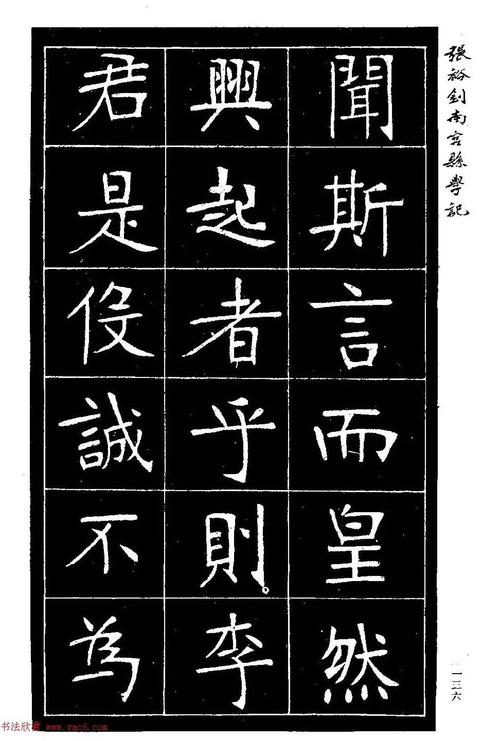 張裕釗南宮縣學記
聞斯言而皇然
興起者乎則李
君是役誠不為
一三六
书法欣赏 www.yac8.com